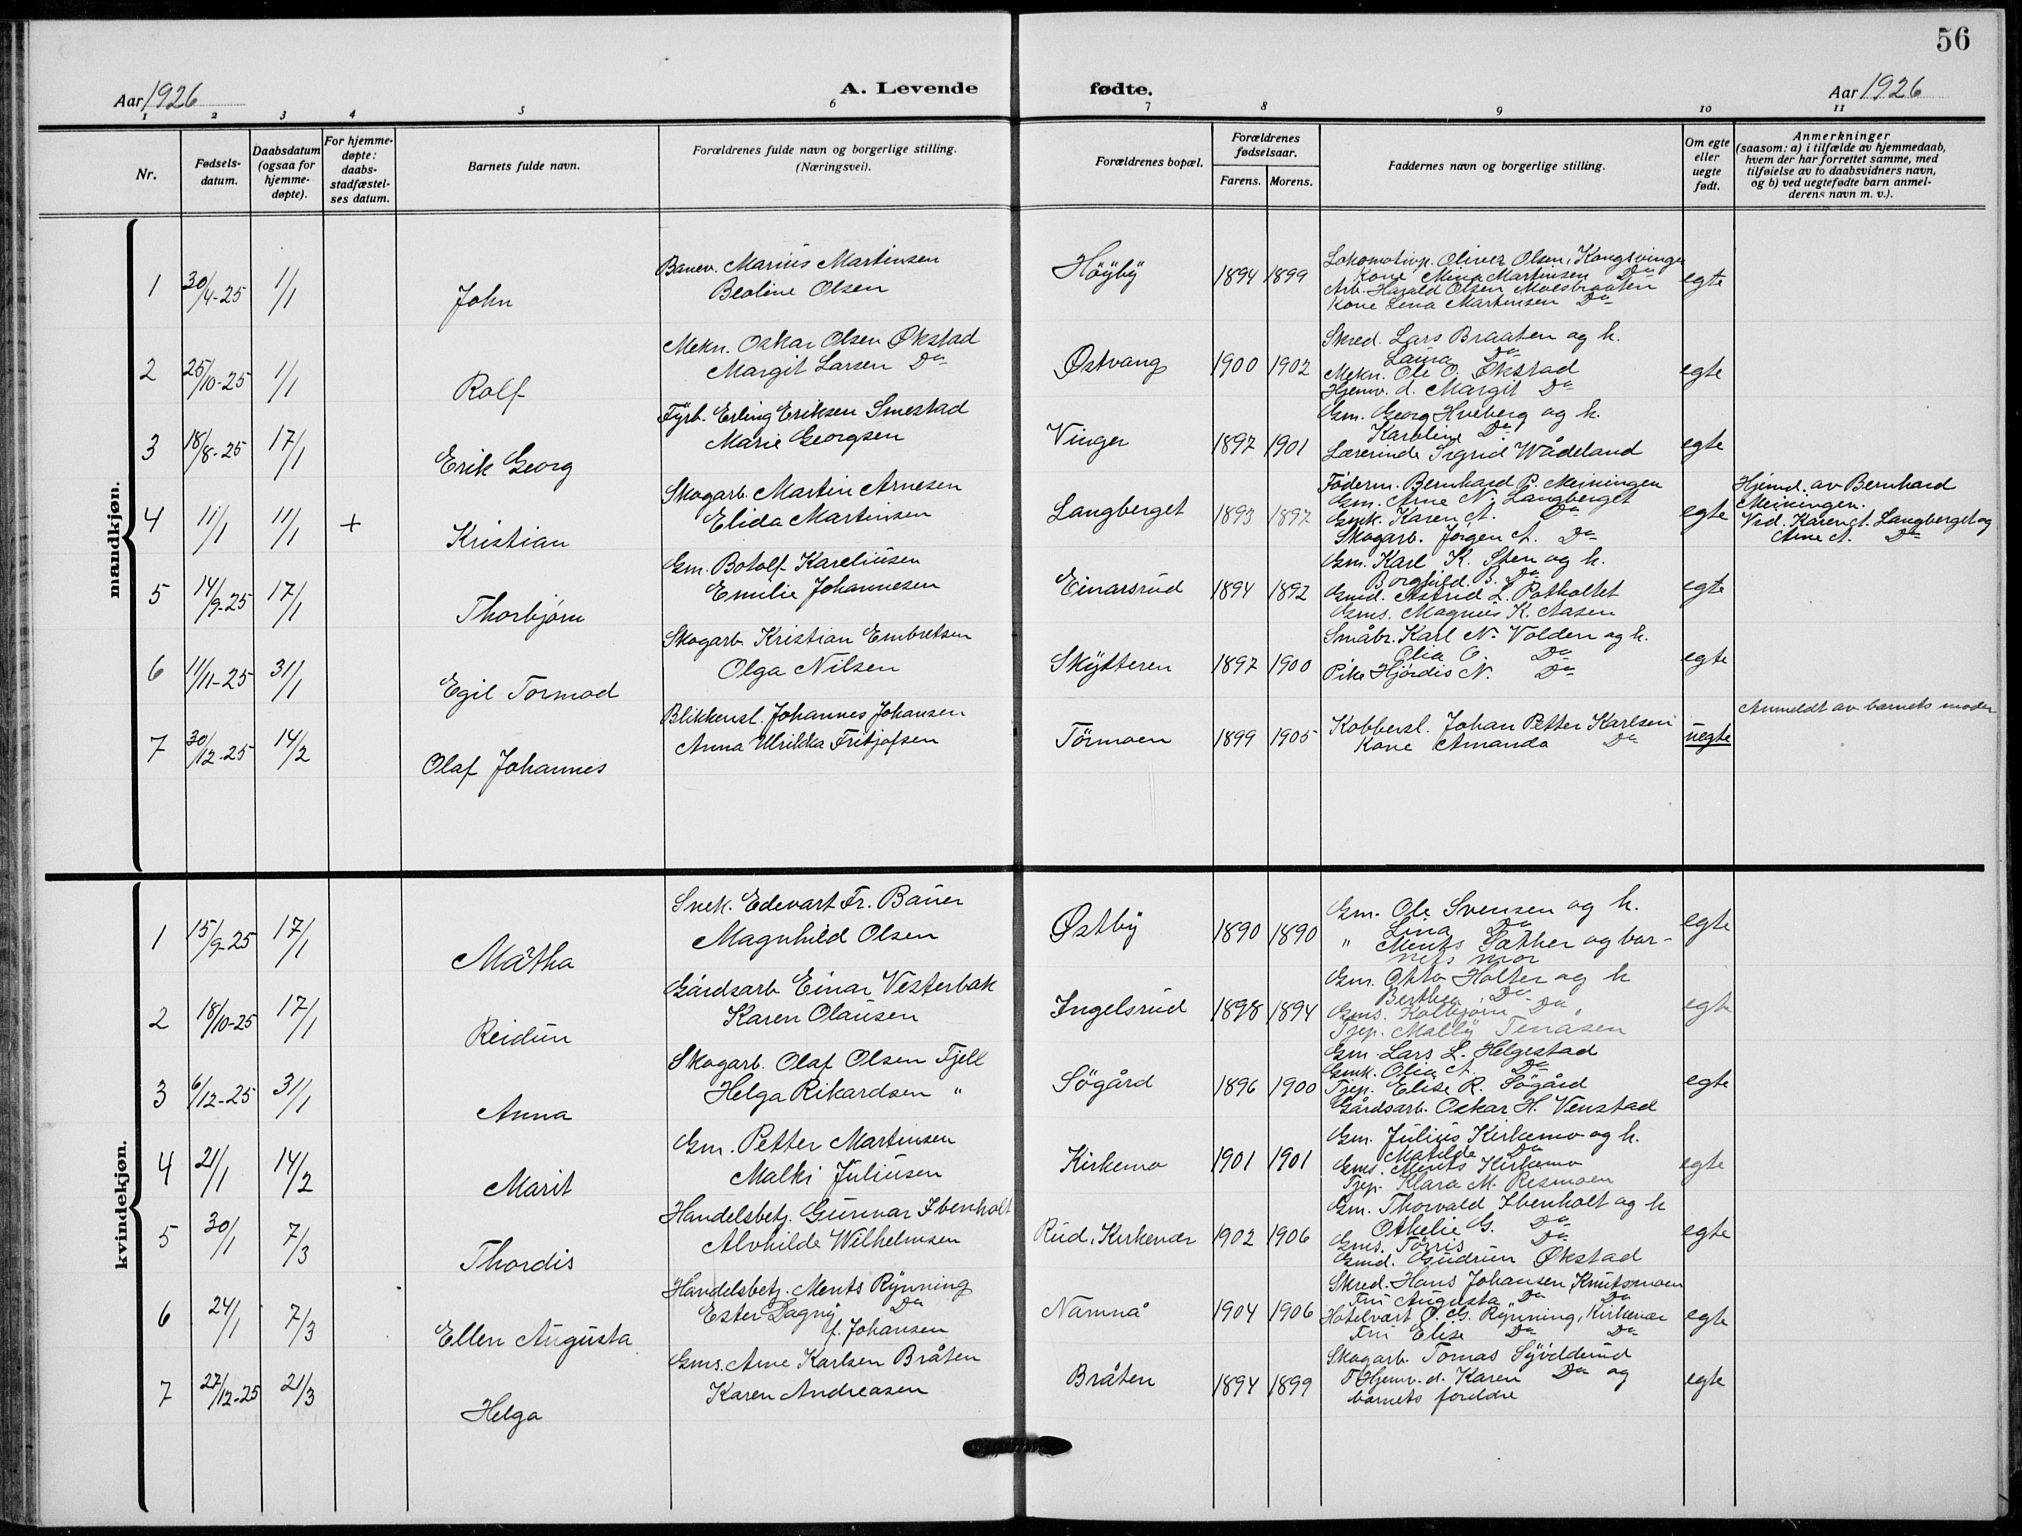 56
Aar 1926
A. Levende fødte.
Aar 1926
1 2 3 4 5 6 7 8 9 10 11
Nr.
Fødsels-
datum.
Daabsdatum
(ogsaa for
hjemme-
døpte).
For hjemme-
døpte:
daabs-
stadfæstel-
ses datum.
Barnets fulde navn.
Forældrenes fulde navn og borgerlige stilling.
(Næringsvei).
Forældrenes bopæl.
Forældrenes
fødselsaar.
Farens. Morens.
Faddernes navn og borgerlige stilling.
Om egte
eller
uegte
født.
Anmerkninger
(saasom: a) i tilfælde av hjemmedaab,
hvem der har forrettet samme, med
tilføielse av to daabsvidners navn,
og b) ved uegtefødte barn anmel-
derens navn m. v.).
mandkjøn.
1 30/4-25 1/1 John
Banev. Marius Martinsen
Beoline Olsen
Høyby 1894 1899
Lokomotivp. Oliver Olsen, Kongsvinger
Kone Mina Martinsen Do
Arb. Harald Olsen Moesbraaten
Kone Lena Martinsen Do
egte
2 25/10-25 1/1 Rolf
Mekn. Oskar Olsen Økstad
Margit Larsen Do
Østvang 1900 1902
Skred. Lars Braaten og h.
Laura Do
Mekn. Ole O. Økstad
Hjemv. d. Margit Do
egte
3 18/8-25 17/1 Erik Georg
Fyrb. Erling Eriksen Smestad
Marie Georgsen
Vinger 1897 1901
Gm. Georg Hveberg og h.
Karoline Do
Lærerinde Sigrid Wådeland
egte
4 11/1 11/1 + Kristian
Skogarb. Martin Arnesen
Elida Martinsen
Langberget 1893 1897
Føderm. Bernhard P. Meiningen
Gm. Arne N. Langberget
Gmk. Karen A. Do
Skogarb. Jørgen A. Do
egte
Hjemd. av Bernhard
Meiningen.
Ved. Karen A. Langberget og
Arne A. Do
5 14/9-25 17/1 Thorbjørn
Gm. Botolf Kareliusen
Emilie Johannesen
Einarsrud 1894 1892
Gm. Karl K. Sten og h.
Borghild B. Do
Gmd. Astrid L. Potholtet
Gms. Magnus K. Aasen
egte
6 11/11-25 31/1 Egil Tormod
Skogarb. Kristian Embretsen
Olga Nilsen
Skytteren 1897 1900
Småbr. Karl N. Volden og h.
Olia O. Do
Pike Hjørdis N. Do
egte
7 30/12-25 14/2 Olaf Johannes
Blikkensl. Johannes Johansen
Anna Ulrikka Fritjofsen
Tørmoen 1899 1905
Kobbersl. Johan Petter Karlsen
Kone Amanda Do
uegte
Anmeldt av barnets moder
kvindekjøn.
1 15/9-25 17/1 Mätha
Snek. Edevart Fr. Bauer
Magnhild Olsen
Østby 1890 1890
Gm. Ole Svensen og h.
Lina Do
" Ments Sæther og bar-
nets mor
egte
2 18/10-25 17/1 Reidun
Gårdsarb Einar Vesterbak
Karen Olausen
Ingelsrud 1898 1894
Gm. Otto Holter og h
Berthea Do
Gms. Kolbjørn Do
Tjep. Mally Tenåsen
egte
3 6/12-25 31/1 Anna
Skogarb. Olaf Olsen Fjell
Helga Rikardsen "
Søgård 1896 1900
Gm. Lars L. Helgestad
Gmk. Olia A. Do
Tjep. Elise R. Søgård
Gårdsarb. Oskar H. Venstad
egte
4 21/1 14/2 Marit
Gm. Petter Martinsen
Malki Juliusen
Kirkemo 1901 1901
Gm. Julius Kirkemo og h.
Matilde Do
Gms. Ments Kirkemo
Tjep. Klara M. Resmoen
egte
5 30/1 7/3 Thordis
Handelsbetj. Gunnar Ibenholt
Alvhilde Wilhelmsen
Rud, Kirkenær 1902 1906
Gm. Thorvald Ibenholt og h
Othelie G. Do
Gms. Torris Do
Gmd. Gudrun Økstad
egte
6 24/1 7/3 Ellen Augusta
Handelsbetj. Ments Rynning
Ester Dagny Do
f. Johansen
Namnå 1904 1906
Skred. Hans Johansen, Knutsmoen
Fru Augusta Do Do
Hotelvært O. G. Rynning, Kirkenær
Fru Elise Do Do
egte
7 27/12-25 21/3 Helga
Gms. Arne Karlsen Bråten
Karen Andreasen
Bråten 1894 1899
Skogarb. Tomas Syvilderud
Hjemv. d. Karen Do og
barnets foreldre
egte